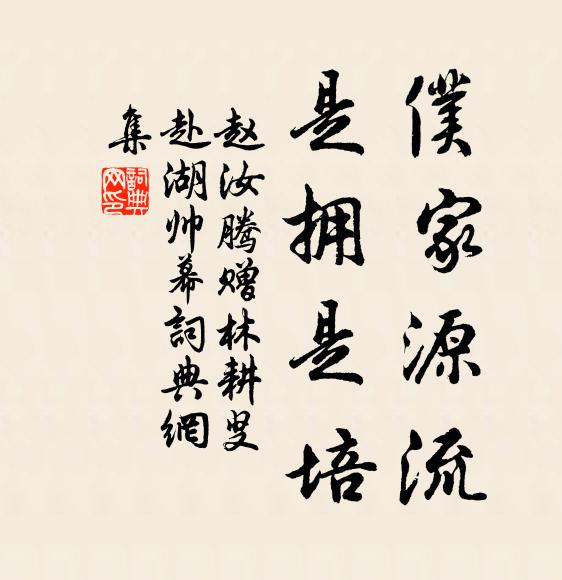 僕家源流
是拥是培
赵汝腾赠林耕叟
赴湖帅幕詞典網
集
詞典網印